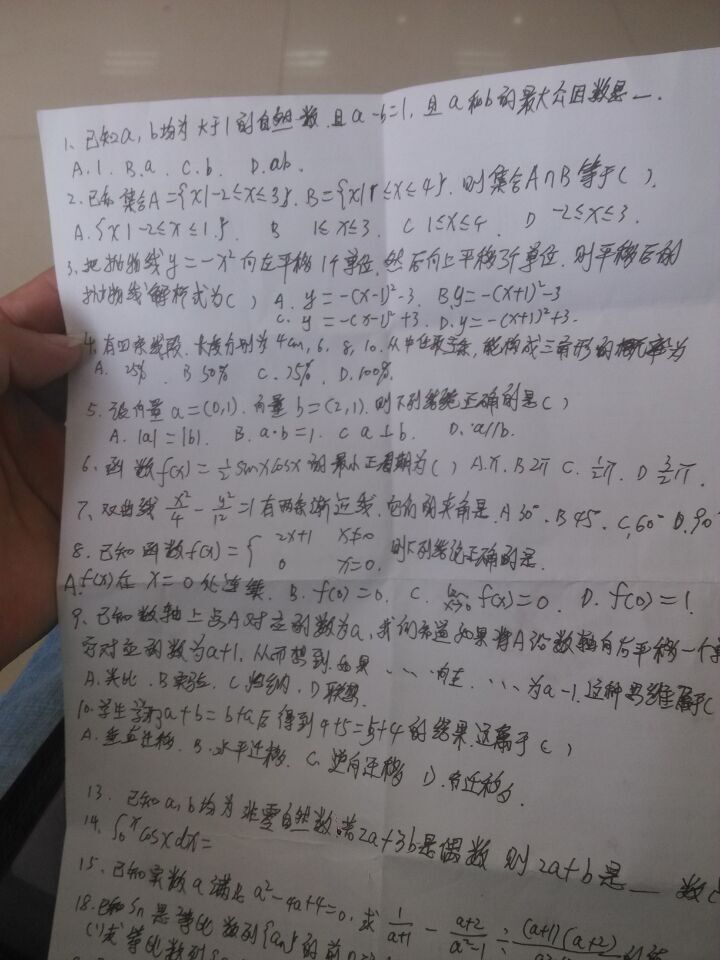 1、已知a,b均为大于1的自然数,且a-b=1,且a和b的最大公因数是—.
A.1. B.a. C.b. D.ab.
2.已知集合A={x|-2≤x≤3}. B={x|1≤x≤4}.则集合A∩B等于( ).
A.{x|-2≤x≤1}. B 1≤x≤3. C 1≤x≤4. D -2≤x≤3.
3、把抛物线y=-x²向左平移1个单位,然后向上平移3个单位.则平移后的
抛物线解析式为( ) A. y=-(x-1)²-3 B.y=-(x+1)²-3
C. y=-(x-1)²+3. D.y=-(x+1)²+3.
4.有四条线段.长度分别为4cm,6,8,10.从中任取三条,能构成三角形的概率为
A. 25% B 50% C.75%. D.100%.
5.设向量a=(0,1).向量b=(2,1).则下列结论正确的是( )
A.|a|=|b|. B.a·b=1. C a⊥b. D.a//b.
6.函数f(x)=½sinxcosx的最小正周期为( ) A.π.B 2π C.½π. D 3/2π.
7、双曲线x²/4-y²/12=1有两条渐近线.它们的夹角是.A 30°.B 45°.C.60°D.90°
8.已知函数f(x)={ 2x+1 x≠0
0 x=0. 则下列结论正确的是.
A.f(x)在x=0处连续. B.f(0)=0. C. lim x→0 f(x)=0. D.f(0)=1.
9.已知数轴上点A对应的数为a,我们知道如果将A沿数轴向右平移一个单
它对应的数为a+1,从而想到.如果……向左……为a-1.这种思维属于(
A.类比.B实验.C归纳.D联想.
10.学生学习了a+b=b+a后得到4+5=5+4的结果.这属于( )
A.垂直迁移.B.水平迁移.C.逆向迁移 D.负迁移.
13.已知a,b均为非零自然数.若2a+3b是偶数 则2a+b是—数(
14.∫₀ˣcosxdx=
15.已知实数a满足a²-4a+4=0.求 1/(a+1) - (a+2)/(a²-1) ÷ (a+1)(a+2)
18.已知Sn是等比数列{an}的前n
(1)求等比数列